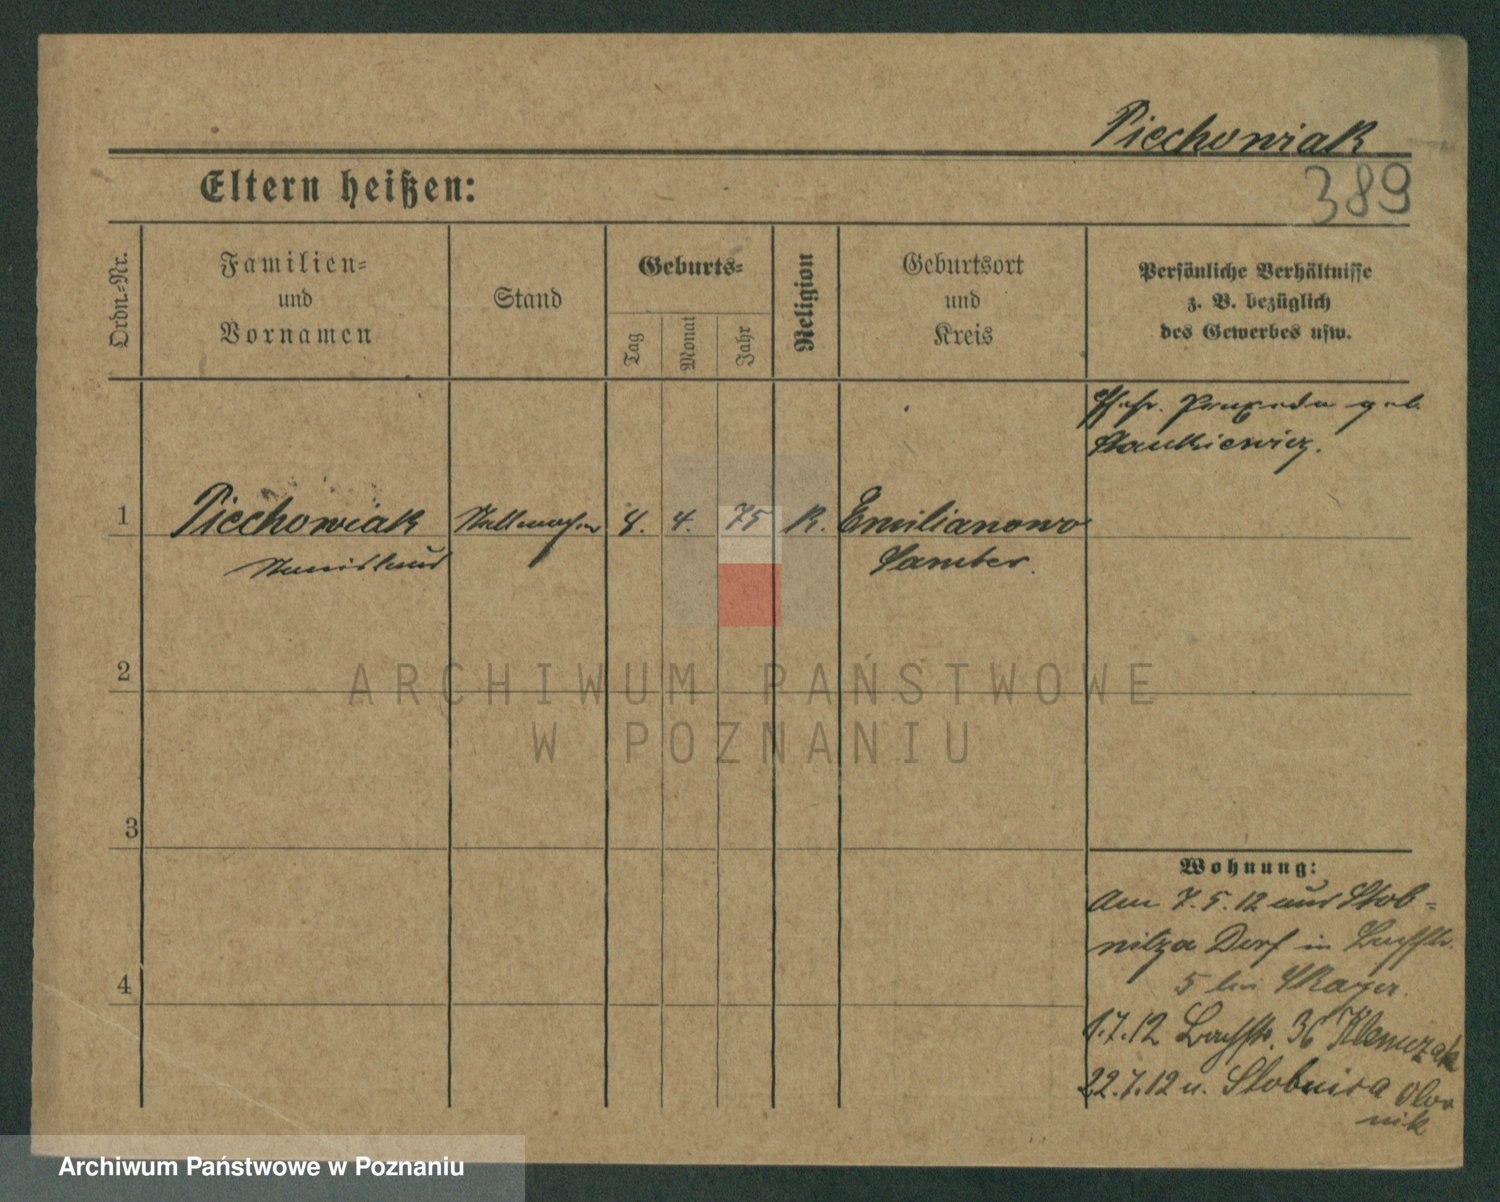 Piechowiak
389
Eltern heißen:
Ordn.=Nr.
Familien=
und
Vornamen
Stand
Geburts=
Tag
Monat
Jahr
Religion
Geburtsort
und
Kreis
Persönliche Verhältnisse
z. B. bezüglich
des Gewerbes usw.
Ehefr. Praxeda geb.
Stankiewicz.
1 Piechowiak Stellmacher 4. 4. 75 K. Emilianowo
Stanislaus Samter.
2
3
4
Wohnung:
Am 7.5.12 aus Stob=
nitza Dorf in
5 bei
1.7.12 36
22.7.12 n. Stobnica
ARCHIWUM PAŃSTWOWE
W POZNANIU
Archiwum Państwowe w Poznaniu